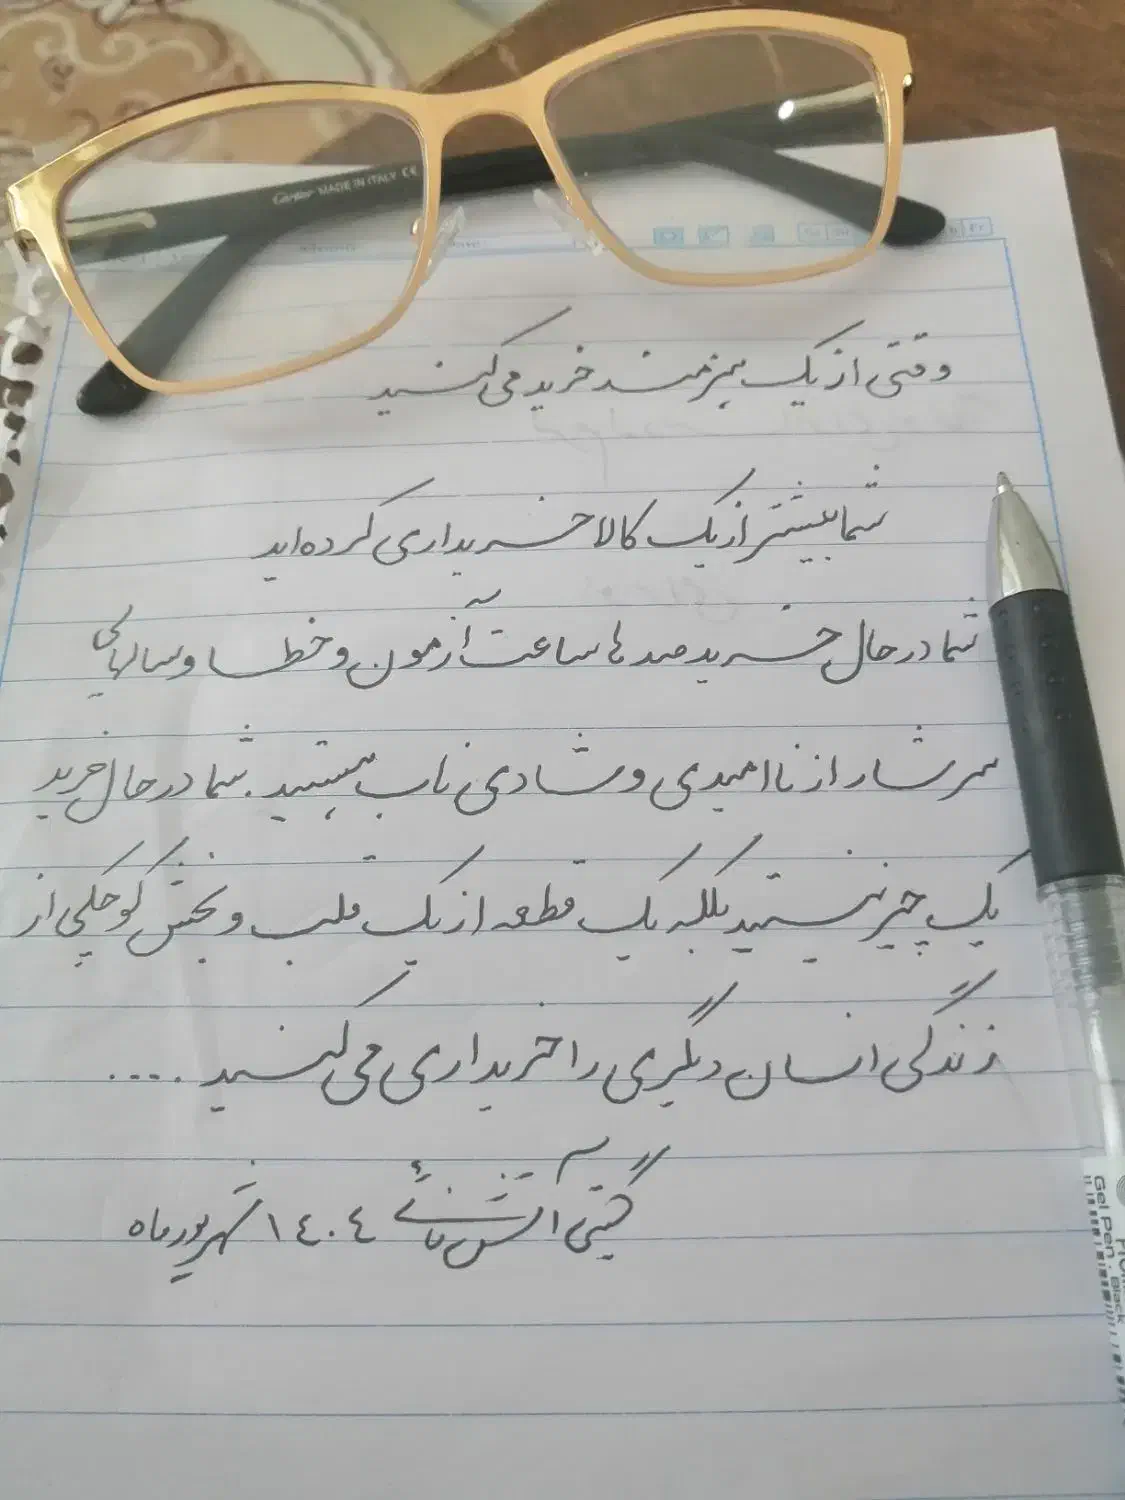 Cartier MADE IN ITALY CE
Fr
وقتی از یک هنرمند خرید می کنید
شما بیشتر از یک کالا خریداری کرده اید
شما در حال خرید صد ها ساعت آزمون و خطا و سالهای
سرشار از ناامیدی و شادی ناب هستید. شما در حال خرید
یک چیز نیستید بلکه یک قطعه از یک قلب و بخش کوچکی از
زندگی انسان دیگری را خریداری می کنید ....
گیتی آتش فشانی ١٤٠٤ شهریور ماه
Gel Pen . Black